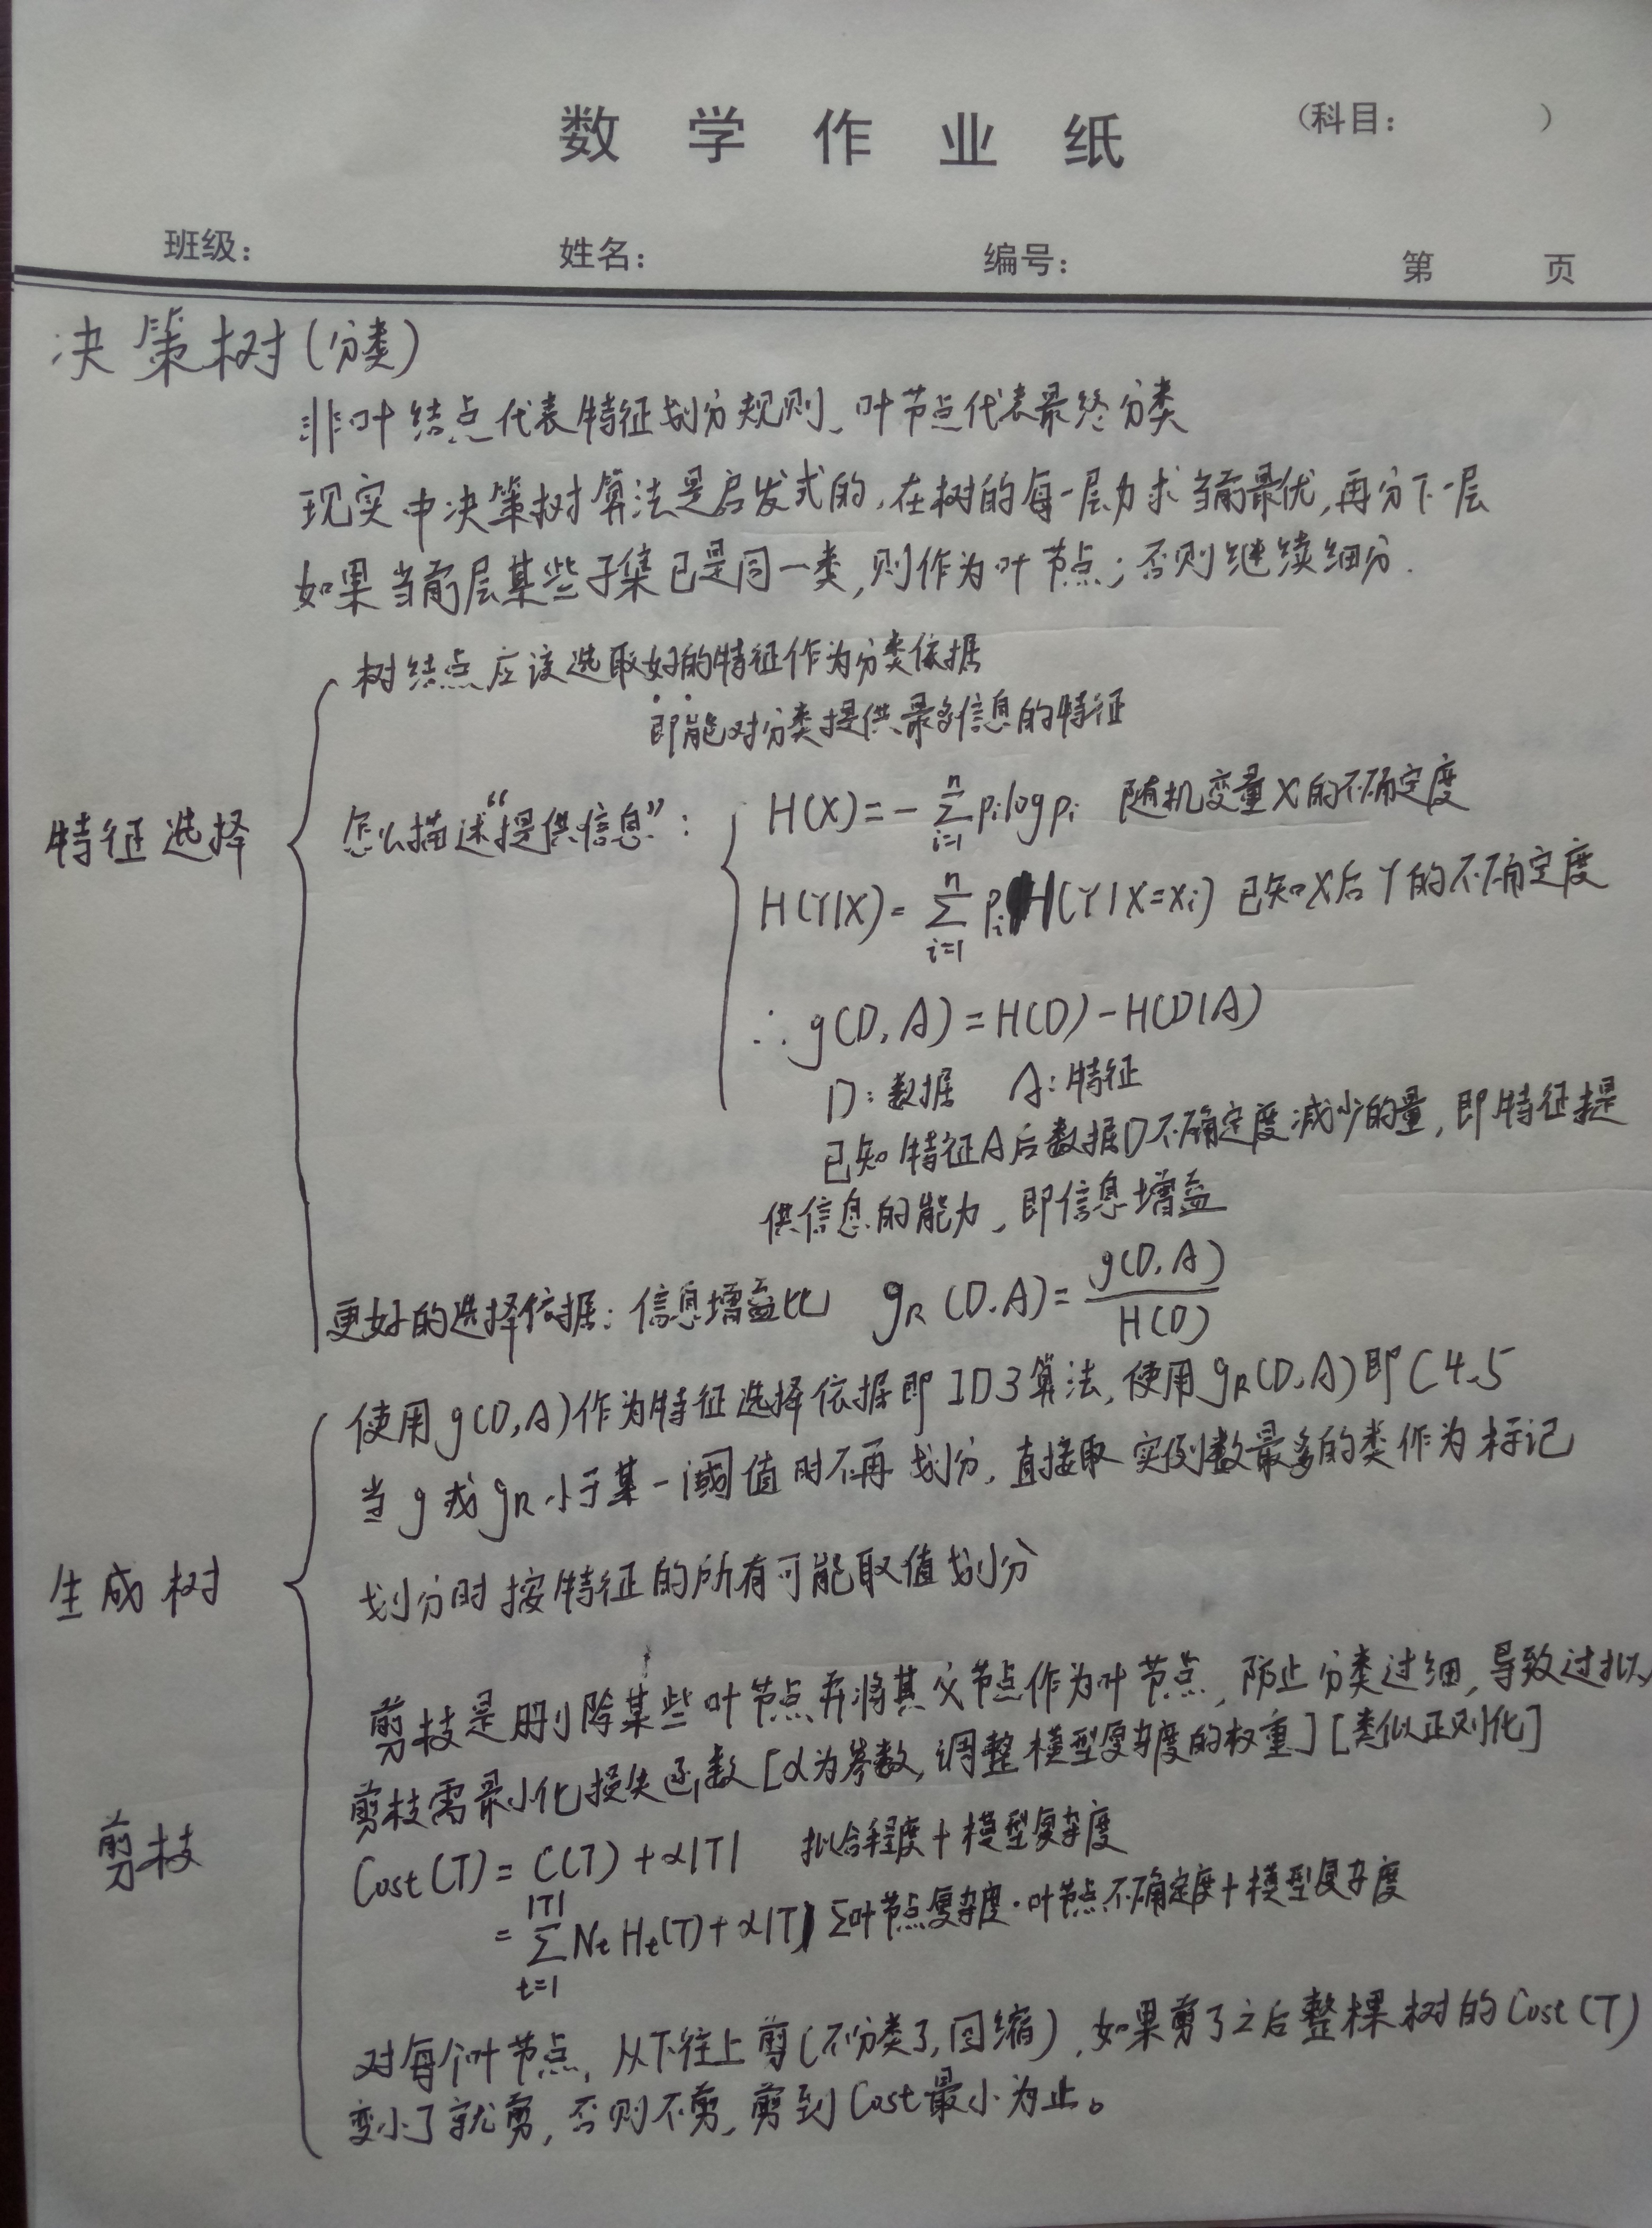 数学作业纸
（科目： ）
班级： 姓名： 编号： 第 页
决策树(分类)
非叶结点代表特征划分规则、叶节点代表最终分类
现实中决策树算法是启发式的,在树的每一层力求当前最优,再分下一层
如果当前层某些子集已是同一类,则作为叶节点;否则继续细分.
树结点应该选取好的特征作为分类依据
即能对分类提供最多信息的特征
特征选择
怎么描述“提供信息”:
H(X)=-∑_{i=1}^{n} p_i log p_i 随机变量X的不确定度
H(Y|X)=∑_{i=1}^{n} p_i H(Y|X=x_i) 已知X后Y的不确定度
∴g(D,A)=H(D)-H(D|A)
D:数据 A:特征
已知特征A后数据D不确定度减少的量,即特征提
供信息的能力,即信息增益
更好的选择依据:信息增益比 g_R(D,A)=g(D,A)/H(D)
使用g(D,A)作为特征选择依据即ID3算法,使用g_R(D,A)即C4.5
当g或g_R小于某一阈值时不再划分,直接取实例数最多的类作为标记
生成树
划分时按特征的所有可能取值划分
剪枝是删除某些叶节点并将其父节点作为叶节点,防止分类过细,导致过拟
剪枝需最小化损失函数[α为参数,调整模型复杂度的权重][类似正则化]
剪枝
Cost(T)=C(T)+α|T| 拟合程度+模型复杂度
=∑_{t=1}^{|T|} N_t H_t(T)+α|T| ∑叶节点复杂度·叶节点不确定度+模型复杂度
对每个叶节点,从下往上剪(不分类了,回缩),如果剪了之后整棵树的Cost(T)
变小了就剪,否则不剪,剪到Cost最小为止。